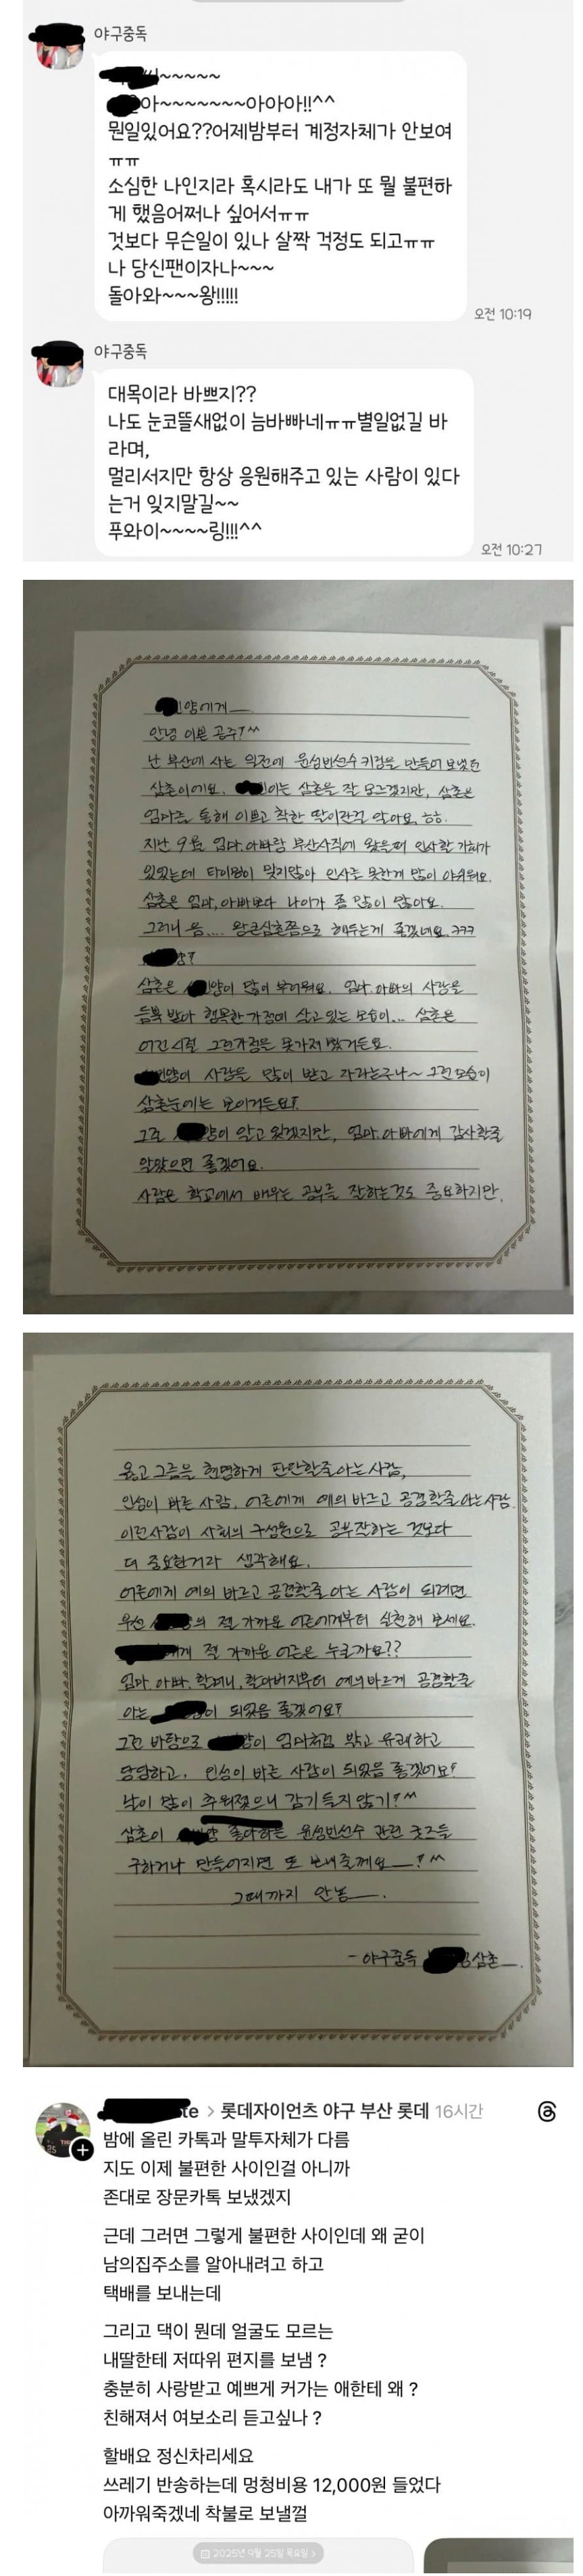 야구중독
~~~~~
아~~~~~~~아아아!!^^
뭔일있어요??어제밤부터 계정자체가 안보여
ㅠㅠ
소심한 나인지라 혹시라도 내가 또 뭘 불편하
게 했음어쩌나 싶어서ㅠㅠ
것보다 무슨일이 있나 살짝 걱정도 되고ㅠㅠ
나 당신팬이자나~~~
돌아와~~~왕!!!!!
오전 10:19
야구중독
대목이라 바쁘지??
나도 눈코뜰새없이 늠바빠네ㅠㅠ별일없길 바
라며,
멀리서지만 항상 응원해주고 있는 사람이 있다
는거 잊지말길~~
푸와이~~~~링!!!^^
오전 10:27
양에게
안녕 이쁜 공주!^^
난 부산에 사는 의전에 윤성빈선수 키링을 만들어 보냈던
삼촌이에요. 이는 삼촌을 잘 모르겠지만, 삼촌은
엄마를 통해 이쁘고 착한 딸이란걸 알아요.ㅎㅎ.
지난 9월 엄마.아빠랑 부산사직에 왔을때 인사할 기회가
있었는데 타이밍이 맞지않아 인사를 못한게 많이 아쉬워요.
삼촌은 엄마,아빠보다 나이가 좀 많이 많아요.
그러니 음.... 왕큰삼촌쯤으로 해두는게 좋겠네요.ㅋㅋㅋ
양!
삼촌은 양이 많이 부러워요. 엄마.아빠의 사랑을
듬뿍 받다 행복한 가정에 살고 있는 모습이... 삼촌은
어린시절 그런가정을 못가져 봤거든요.
양이 사랑을 많이 받고 자라는구나~ 그런 모습이
삼촌눈에는 보이거든요!
그건 양이 알고 있겠지만, 엄마.아빠에게 감사할줄
알았으면 좋겠어요.
사람은 학교에서 배우는 공부를 잘하는것도 중요하지만,
옳고 그름을 현명하게 판단할줄아는 사람,
인성이 바른 사람, 어른에게 예의 바르고 공경할줄 아는 사람
이런사람이 사회의 구성원으로 공부잘하는 것보다
더 중요한거라 생각해요.
어른에게 예의 바르고 공경할줄 아는 사람이 되려면
우선 의 젤 가까운 어른에게부터 실천해 보세요.
에게 젤 가까운 어른은 누굴까요??
엄마.아빠.할머니.할아버지부터 예의바르게 공경할줄
아는 이 되었음 좋겠어요!
그런 바탕으로 양이 엄마처럼 밝고 유쾌하고
당당하고, 인성이 바른 사람이 되었음 좋겠어요!
날이 많이 추워졌으니 감기들지 않기!^^
삼촌이 좋아하는 윤성빈선수 관련 굿즈들
구하거나 만들어지면 또 보내줄께요__!^^
그때까지 안뇽__.
- 야구중독 삼촌__.
te > 롯데자이언츠 야구 부산 롯데 16시간
밤에 올린 카톡과 말투자체가 다름
지도 이제 불편한 사이인걸 아니까
존대로 장문카톡 보냈겠지
근데 그러면 그렇게 불편한 사이인데 왜 굳이
남의집주소를 알아내려고 하고
택배를 보내는데
그리고 댁이 뭔데 얼굴도 모르는
내딸한테 저따위 편지를 보냄 ?
충분히 사랑받고 예쁘게 커가는 애한테 왜 ?
친해져서 여보소리 듣고싶나 ?
할배요 정신차리세요
쓰레기 반송하는데 멍청비용 12,000원 들었다
아까워죽겠네 착불로 보낼껄
2025년 9월 25일 목요일 >